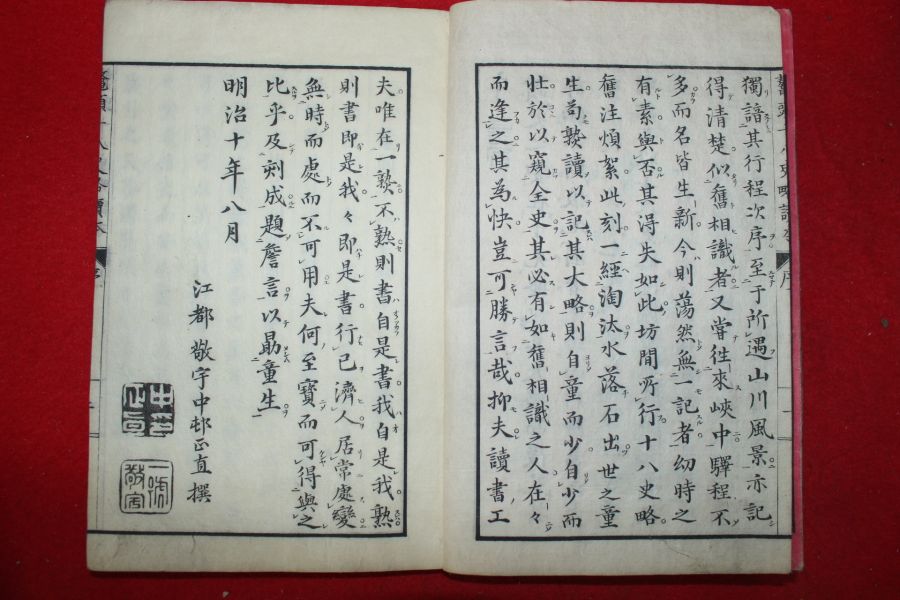 獨諳其行程次序至于所遇山川風景亦記
得清楚似舊相識者又嘗往來峽中驛程不
多而名皆生新今則蕩然無一記者幼時之
有素與否其得失如此坊間所行十八史略
舊注煩絮此刻一經淘汰水落石出世之童
生苟熟讀以記其大略則自童而少自少而
壯於以窺全史其必有如舊相識之人在々
而逢之其為快豈可勝言哉抑夫讀書工
夫唯在一熟不熟則書自是書我自是我熟
則書即是我々即是書行己濟人居常處變
無時而處而不可用夫何至寶而可得與之
比乎及刻成題詹言以勗童生
明治十年八月
江都 敬宇中邨正直 撰